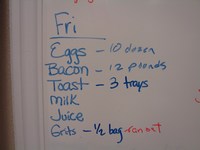 Fri
Eggs - 10 dozen
Bacon - 12 pounds
Toast - 3 trays
Milk
Juice
Grits - ½ bag - ran out